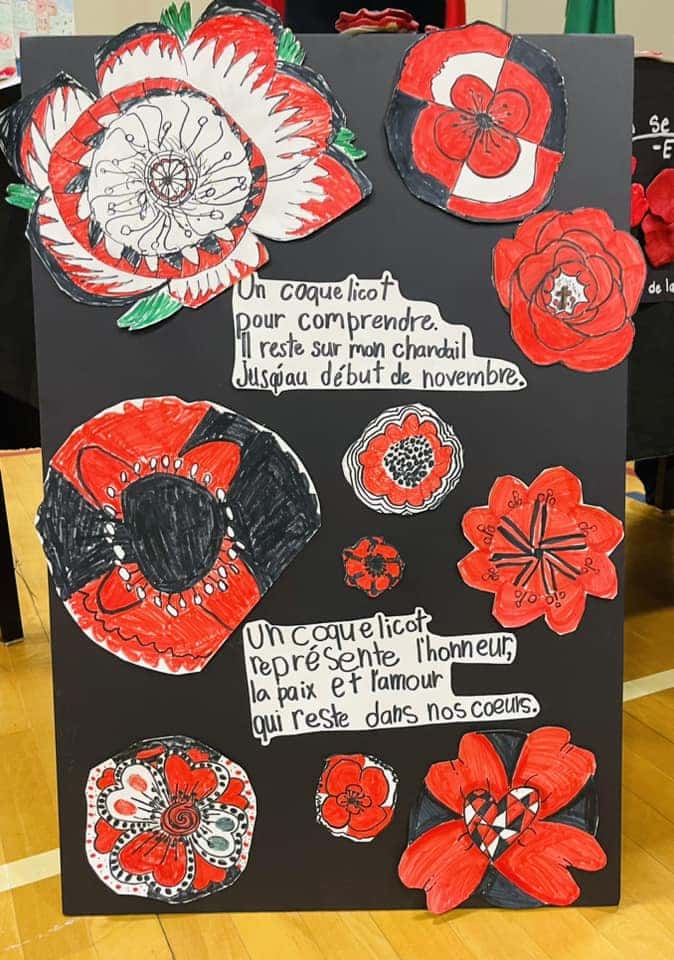 Un coquelicot
pour comprendre.
Il reste sur mon chandail
Jusqu'au début de novembre.
Un coquelicot
représente l'honneur,
la paix et l'amour
qui reste dans nos coeurs.
se
-E
de la